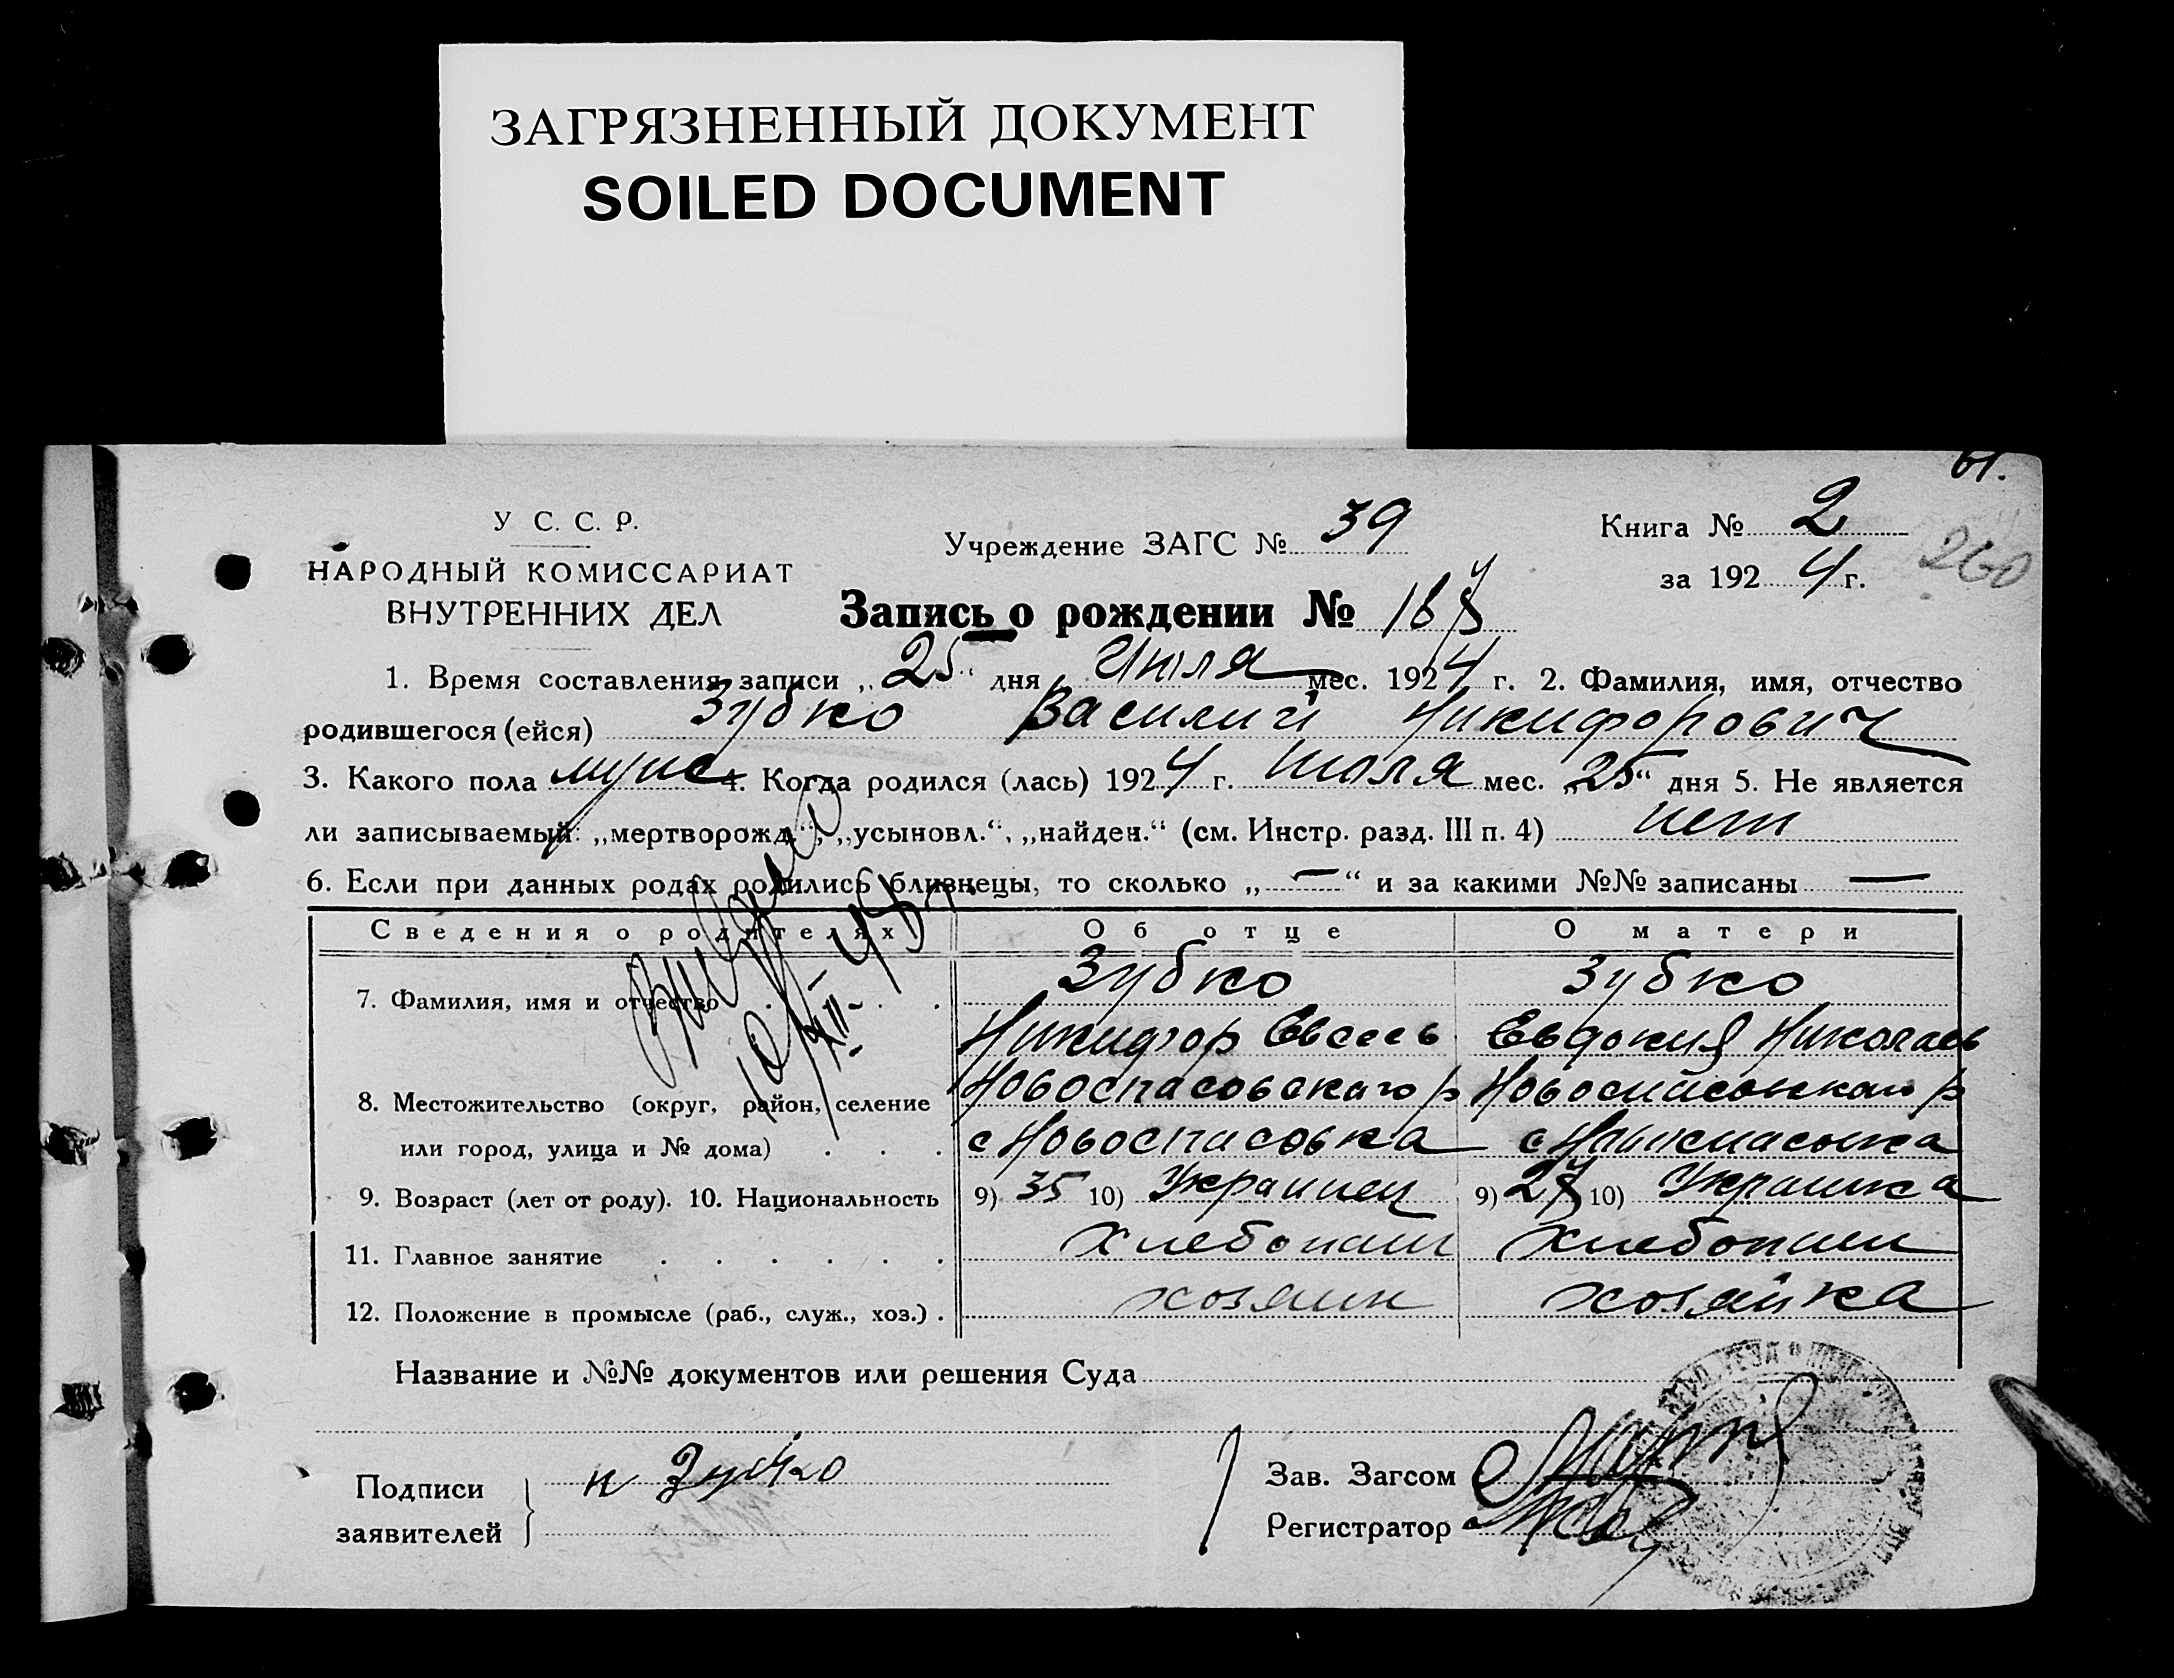 ЗАГРЯЗНЕННЫЙ ДОКУМЕНТ
SOILED DOCUMENT
61.
У С. С. Р.
НАРОДНЫЙ КОМИССАРИАТ
ВНУТРЕННИХ ДЕЛ
Учреждение ЗАГС № 39
Книга № 2
за 1924 г.
260
Запись о рождении №
1. Время составления записи „25“ дня Июля мес. 1924 г. 2. Фамилия, имя, отчество
родившегося (ейся) Зубко Василий Никифорович
3. Какого пола муж 4. Когда родился (лась) 1924 г. июля мес. „25“ дня 5. Не является
ли записываемый: „мертворожд.“, „усыновл.“, „найден.“ (см. Инстр. разд. III п. 4) нет
6. Если при данных родах родились близнецы, то сколько „—“ и за какими №№ записаны —
Сведения о родителях Об отце О матери
7. Фамилия, имя и отчество Зубко Зубко
Никифор Евсеев Евдокия Николаев
8. Местожительство (округ, район, селение Новоспасовского р Новоспасовского р
или город, улица и № дома) с Новоспасовка с Новоспасовка
9. Возраст (лет от роду). 10. Национальность 9) 35 10) Украинец 9) 10) Украинка
11. Главное занятие Хлебопаш Хлебопаш
12. Положение в промысле (раб., служ., хоз.) хозяин хозяйка
Название и №№ документов или решения Суда
Подписи заявителей н Зубко
Зав. Загсом
Регистратор